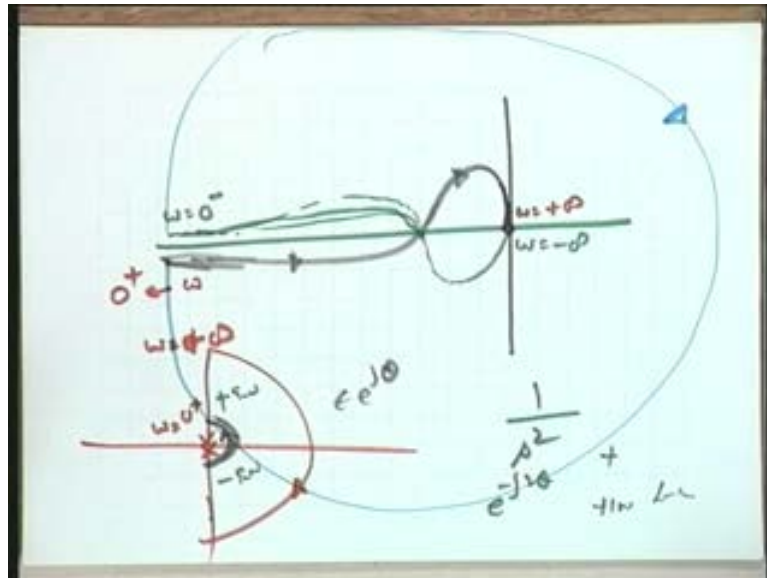 ω=0⁻
ω=+∞
ω=-∞
0⁺ ← ω
ω=+∞
+εω
ω=0⁺
-εω
εe^jθ
1
s²
e^-j2θ
+